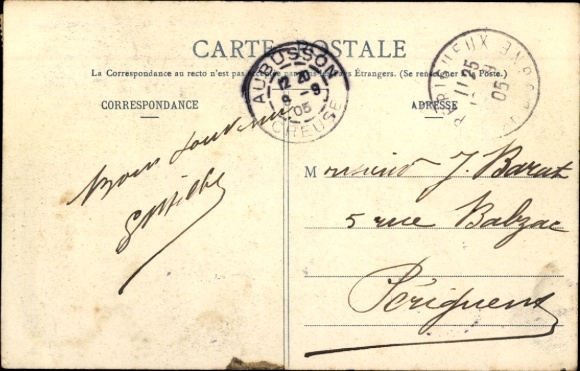 CARTE POSTALE
La Correspondance au recto n'est pas acceptée par tous les Pays Étrangers. (Se renseigner à la Poste.)
CORRESPONDANCE
ADRESSE
AUBUSSON
12 20
9 - 9
05
CREUSE
PERIGUEUX
11 25
9
05
Bons souvenirs
Monsieur J. Barat
5 rue Balzac
Périgueux